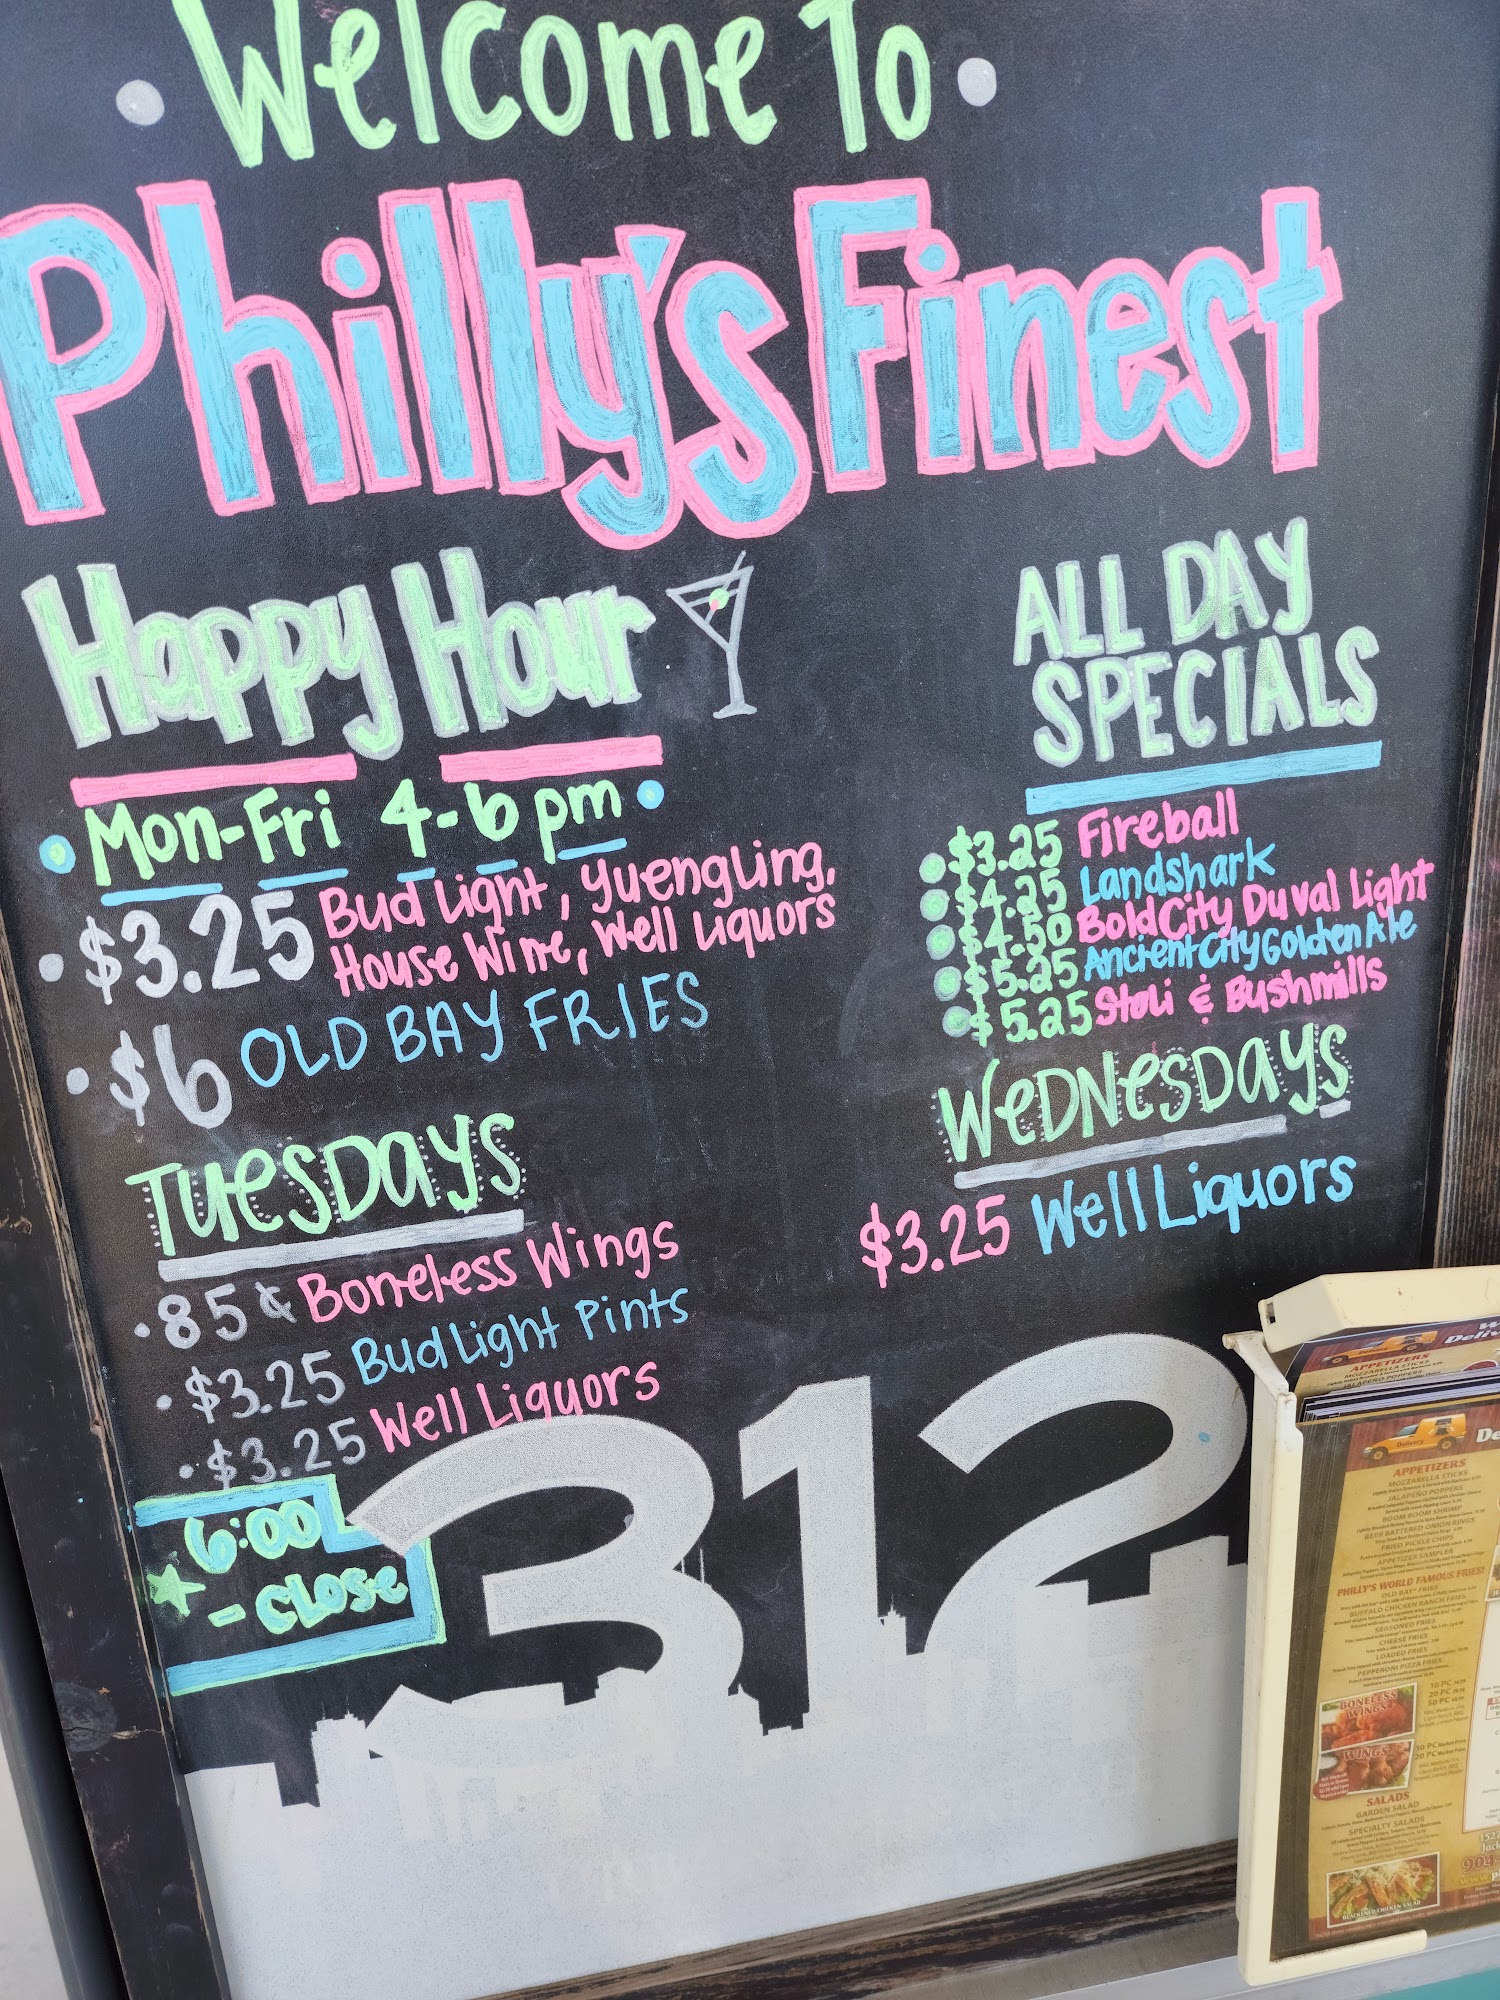 Welcome To
Philly's Finest
Happy Hour
Mon-Fri 4-6 pm
$3.25 Bud Light, Yuengling,
House Wine, Well Liquors
$6 OLD BAY FRIES
TUESDAYS
85¢ Boneless Wings
$3.25 Bud Light Pints
$3.25 Well Liquors
6:00
- CLOSE
ALL DAY
SPECIALS
$3.25 Fireball
$4.25 Landshark
$4.50 Bold City Duval Light
$5.25 Ancient City Golden Ale
$5.25 Stoli & Bushmills
WEDNESDAYS
$3.25 Well Liquors
312
Delivery
APPETIZERS
MOZZARELLA STICKS
JALAPEÑO POPPERS
Delivery
APPETIZERS
MOZZARELLA STICKS
JALAPEÑO POPPERS
BOOM BOOM SHRIMP
BEER BATTERED ONION RINGS
FRIED PICKLE CHIPS
APPETIZER SAMPLER
PHILLY'S WORLD FAMOUS FRIES!
OLD BAY FRIES
BUFFALO CHICKEN RANCH FRIES
SEASONED FRIES
CHEESE FRIES
LOADED FRIES
PEPPERONI PIZZA FRIES
BONELESS
WINGS
10 PC
20 PC
50 PC
WINGS
10 PC Market Price
20 PC Market Price
SALADS
GARDEN SALAD
SPECIALTY SALADS
BLACKENED CHICKEN SALAD
904